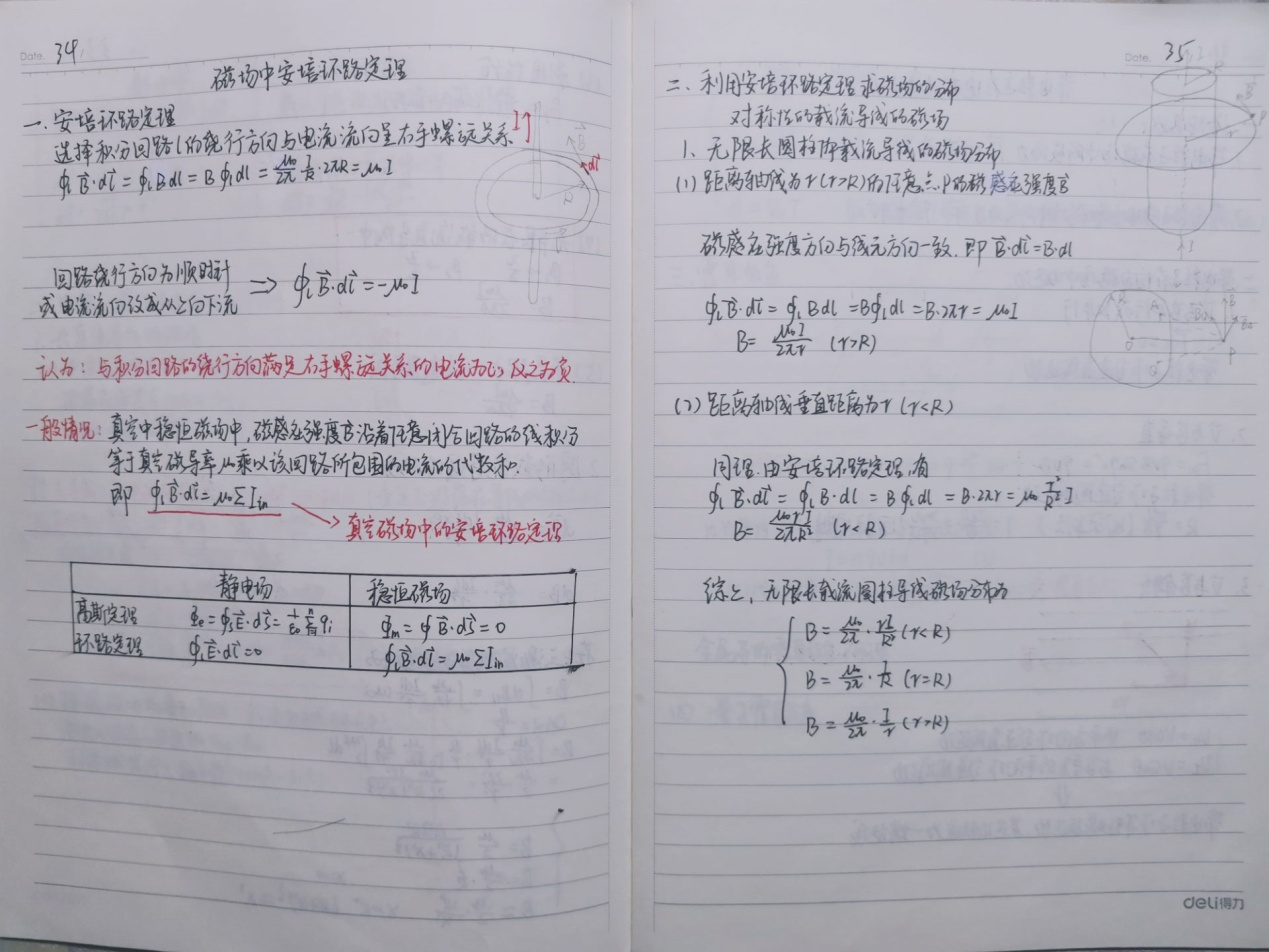 Date. 34
磁场中安培环路定理
一、安培环路定理
选择积分回路l的绕行方向与电流流向呈右手螺旋关系 I↑
∮ₗB⃗·dl⃗ = ∮ₗBdl = B∮ₗdl = μ₀/2π · I/R · 2πR = μ₀I
B⃗
dl⃗
回路绕行方向为顺时针
或电流流向改成从上向下流 ⇒ ∮ₗB⃗·dl⃗ = -μ₀I
认为：与积分回路的绕行方向满足右手螺旋关系的电流为正，反之为负.
一般情况：真空中稳恒磁场中，磁感应强度B⃗沿着任意闭合回路的线积分
等于真空磁导率μ₀乘以该回路所包围的电流的代数和.
即 ∮ₗB⃗·dl⃗ = μ₀ΣI_in
真空磁场中的安培环路定理
静电场 稳恒磁场
高斯定理 Φe = ∮ₛE⃗·dS⃗ = 1/ε₀ Σqᵢ Φm = ∮B⃗·dS⃗ = 0
环路定理 ∮ₗE⃗·dl⃗ = 0 ∮ₗB⃗·dl⃗ = μ₀ΣI_in
Date. 35
二、利用安培环路定理求磁场的分布
对称性的载流导线的磁场
1、无限长圆柱体载流导线的磁场分布
(1) 距离轴线为r(r>R)的任意点P的磁感应强度B⃗
磁感应强度方向与线元方向一致.即 B⃗·dl⃗ = B·dl
I
∮ₗB⃗·dl⃗ = ∮ₗBdl = B∮ₗdl = B·2πr = μ₀I
B = μ₀I/2πr (r>R)
P
(2) 距离轴线垂直距离为r (r<R)
同理.由安培环路定理,有
∮ₗB⃗·dl⃗ = ∮ₗB·dl = B∮ₗdl = B·2πr = μ₀ r²/R² I
B = μ₀rI/2πR² (r<R)
综上，无限长载流圆柱导线磁场分布为
B = μ₀/2π · rI/R² (r<R)
B = μ₀/2π · I/R (r=R)
B = μ₀/2π · I/r (r>R)
deli得力